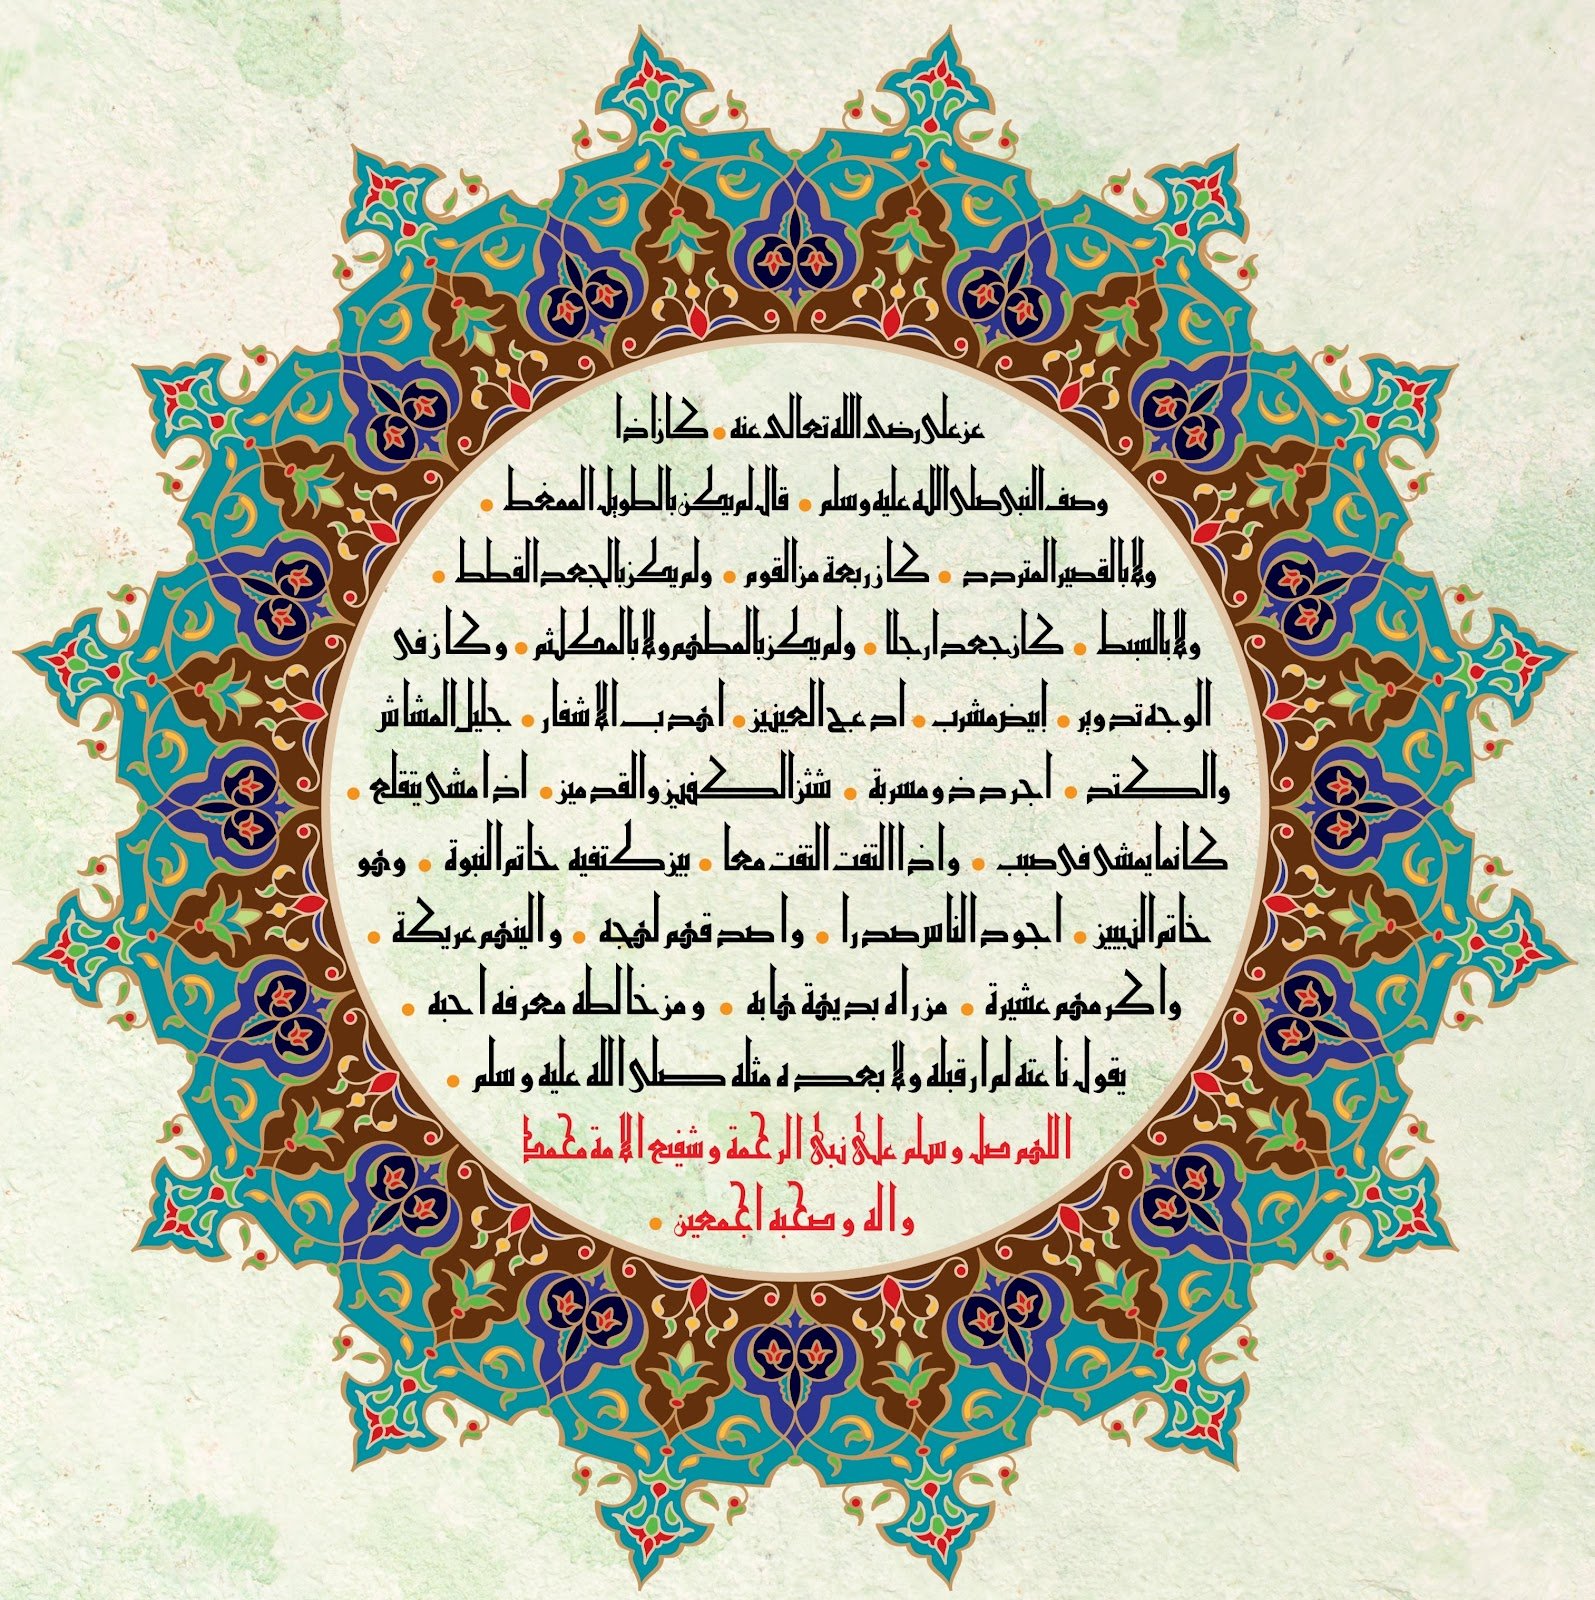 عن على رضى الله تعالى عنه كان اذا
وصف النبى صلى الله عليه وسلم قال لم يكن بالطويل الممغط
ولا بالقصير المتردد كان ربعة من القوم ولم يكن بالجعد القطط
ولا بالسبط كان جعدا رجلا ولم يكن بالمطهم ولا بالمكلثم وكان فى
الوجه تدوير ابيض مشرب ادعج العينين اهدب الاشفار جليل المشاش
والكتد اجرد ذو مسربة شثن الكفين والقدمين اذا مشى يتقلع
كانما يمشى فى صبب واذا التفت التفت معا بين كتفيه خاتم النبوة وهو
خاتم النبيين اجود الناس صدرا واصدقهم لهجه والينهم عريكة
واكرمهم عشيرة من راه بديهة هابه ومن خالطه معرفه احبه
يقول ناعته لم ار قبله ولا بعده مثله صلى الله عليه وسلم
اللهم صل وسلم على نبى الرحمة وشفيع الامة محمد
واله وصحبه اجمعين